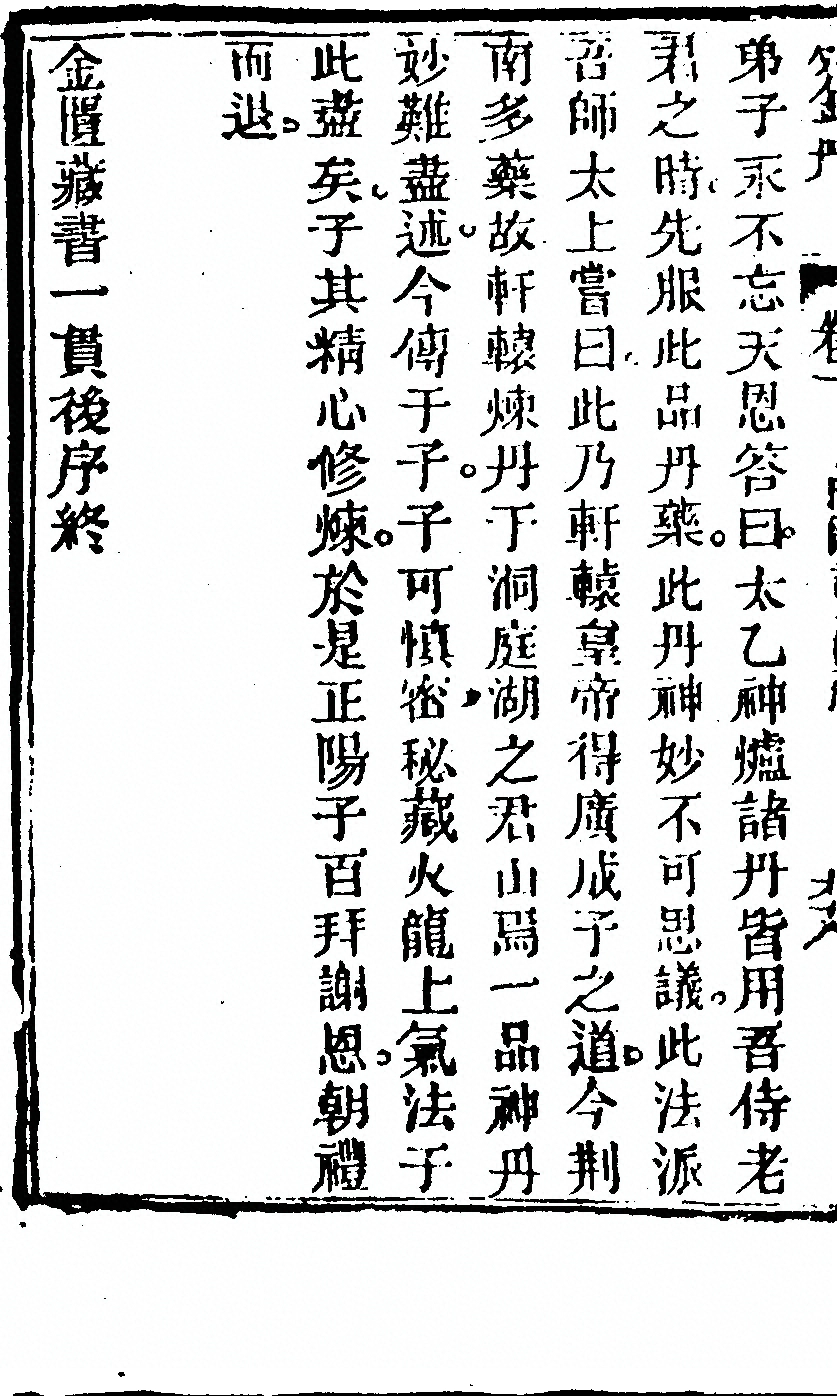 弟子永不忘天恩答曰太乙神爐諸丹皆用吾侍老
君之時先服此品丹藥此丹神妙不可思議此法派
吾師太上嘗曰此乃軒轅皇帝得廣成子之道今荆
南多藥故軒轅煉丹于洞庭湖之君山焉一品神丹
妙難盡述今傳于子子可慎密秘藏火龍上氣法于
此盡矣子其精心修煉於是正陽子百拜謝恩朝禮
而退
金匱藏書一貫後序終